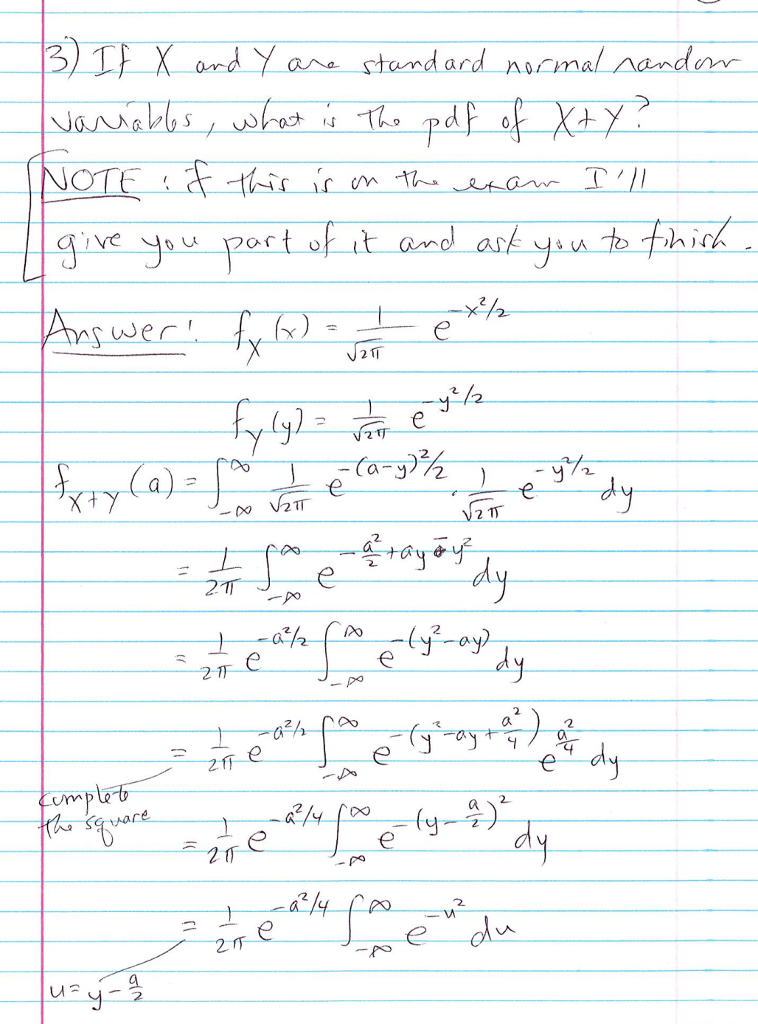 3) If X and Y are standard normal random
variables, what is the pdf of X+Y?
NOTE: if this is on the exam I'll
give you part of it and ask you to finish.
Answer: f_X(x) = 1/√2π e^(-x²/2)
f_Y(y) = 1/√2π e^(-y²/2)
f_X+Y(a) = ∫_-∞^∞ 1/√2π e^(-(a-y)²/2) · 1/√2π e^(-y²/2) dy
= 1/2π ∫_-∞^∞ e^(-a²/2 + ay - y²) dy
= 1/2π e^(-a²/2) ∫_-∞^∞ e^(-(y²-ay)) dy
= 1/2π e^(-a²/2) ∫_-∞^∞ e^(-(y²-ay+a²/4)) e^(a²/4) dy
complete
the square
= 1/2π e^(-a²/4) ∫_-∞^∞ e^(-(y-a/2)²) dy
= 1/2π e^(-a²/4) ∫_-∞^∞ e^(-u²) du
u = y - a/2